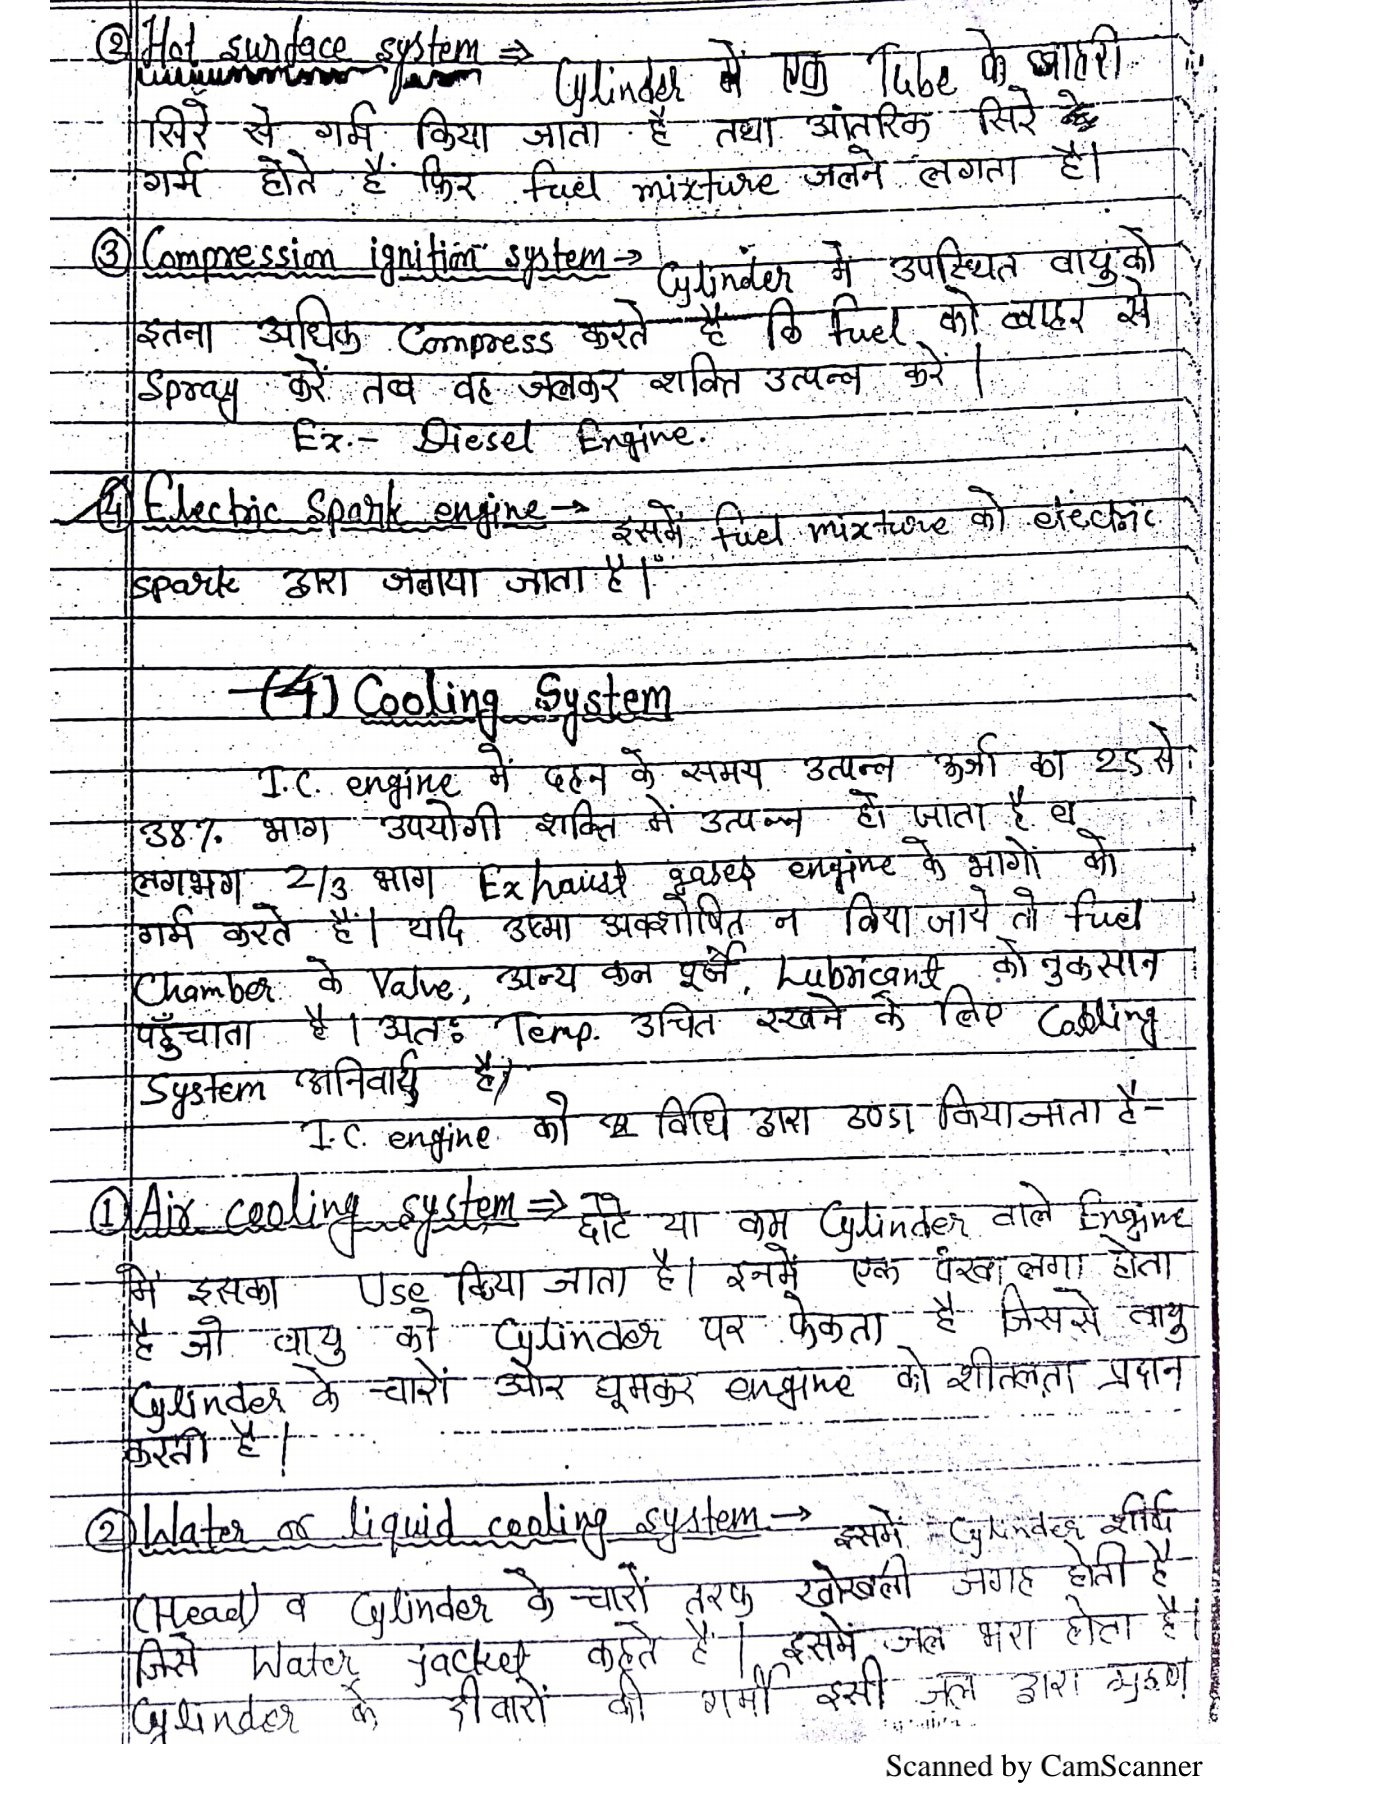 ② Hot surface system ⇒ Cylinder में एक Tube के बाहरी
सिरे से गर्म किया जाता है तथा आंतरिक सिरे
गर्म होते हैं फिर fuel mixture जलने लगता है।
③ Compression ignition system → Cylinder में उपस्थित वायु को
इतना अधिक Compress करते है कि fuel को बाहर से
Spray करें तब वह जलकर शक्ति उत्पन्न करें |
Ex.- Diesel Engine.
④ Electric Spark engine → इसमें fuel mixture को electric
spark द्वारा जलाया जाता है।
(4) Cooling System
I.C. engine में दहन के समय उत्पन्न ऊर्जा का 25 से
38% भाग उपयोगी शक्ति में उत्पन्न हो जाता है व
लगभग 2/3 भाग Exhaust gases engine के भागों को
गर्म करते हैं। यदि उष्मा अवशोषित न किया जाये तो fuel
Chamber के Valve, अन्य कल पूर्जे, Lubricant को नुकसान
पहुँचाता है। अतः Temp. उचित रखने के लिए Cooling
System अनिवार्य है।
I.C. engine को 2 विधि द्वारा ठण्डा किया जाता है-
① Air cooling system ⇒ छोटे या कम Cylinder वाले Engine
में इसका Use किया जाता है। इनमें एक पंखा लगा होता
है जो वायु को Cylinder पर फेकता है जिससे वायु
Cylinder के चारों ओर घूमकर engine को शीतलता प्रदान
करती है |
② Water or liquid cooling system → इसमें Cylinder शीर्ष
(Head) व Cylinder के चारों तरफ खोखली जगह होती है
जिसे Water jacket कहते हैं | इसमें जल भरा होता है।
Cylinder के दीवारों की गर्मी इसी जल द्वारा ग्रहण
Scanned by CamScanner